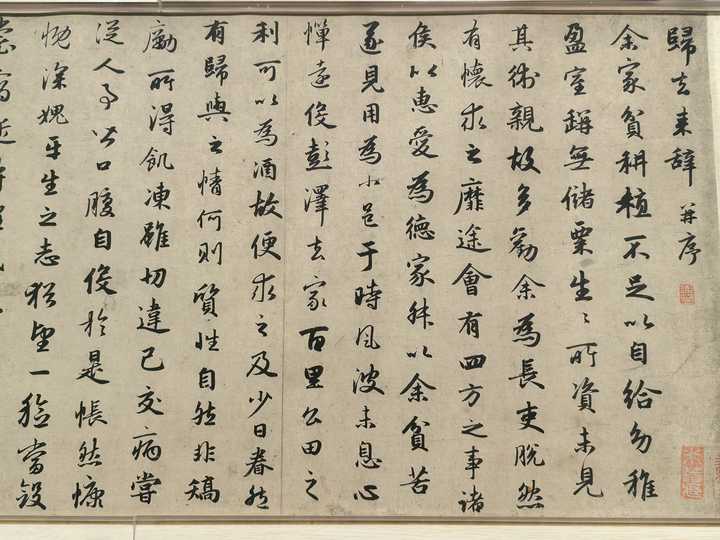 歸去来辞 并序
余家貧耕植不足以自給幼稚
盈室缾無儲粟生〻所資未見
其術親故多勸余為長吏脫然
有懷求之靡途會有四方之事諸
侯以惠愛為德家叔以余貧苦
遂見用為小邑于時風波未息心
憚遠役彭澤去家百里公田之
利可以為酒故便求之及少日眷然
有歸與之情何則質性自然非矯
勵所得飢凍雖切違己交病嘗
從人事皆口腹自役於是悵然慷
慨深媿平生之志猶望一稔當斂
裳宵逝尋程氏